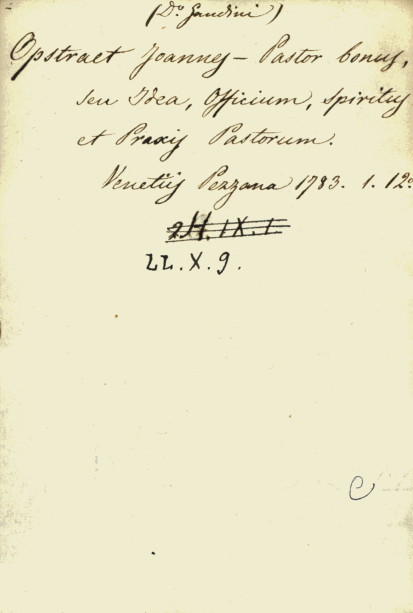 (D.º Gandini)
Opstraet Joannes – Pastor bonus,
seu Idea, Officium, spiritus
et Praxis Pastorum.
Venetiis Pezzana 1783. 1. 12º
2H.IX.1
LL.X.9.